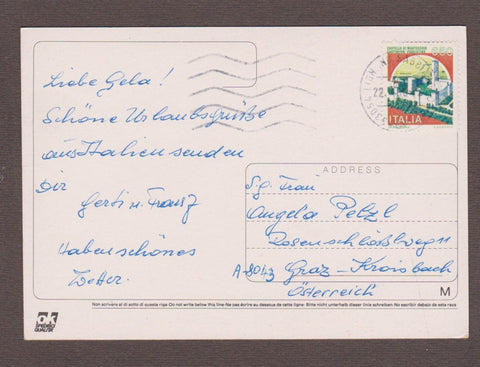 Liebe Gela!
Schöne Urlaubsgrüße
aus Italien senden
Dir
Gerti u. Franz
Haben schönes
Wetter.
ADDRESS
S.g. Frau
Angela Petzl
Rosenschloßlweg 11
A-8043 Graz-Kroisbach
Österreich
M
CASTELLO DI MONTECCHIO
CASTIGLION FIORENTINO
650
ITALIA
22.
Non scrivere al di sotto di questa riga-Do not write below this line-Ne pas écrire au dessous de cette ligne- Bitte nicht unterhalb dieser Linie schreiben- No escribir debajo de esta raya
OK
QUALITÀ